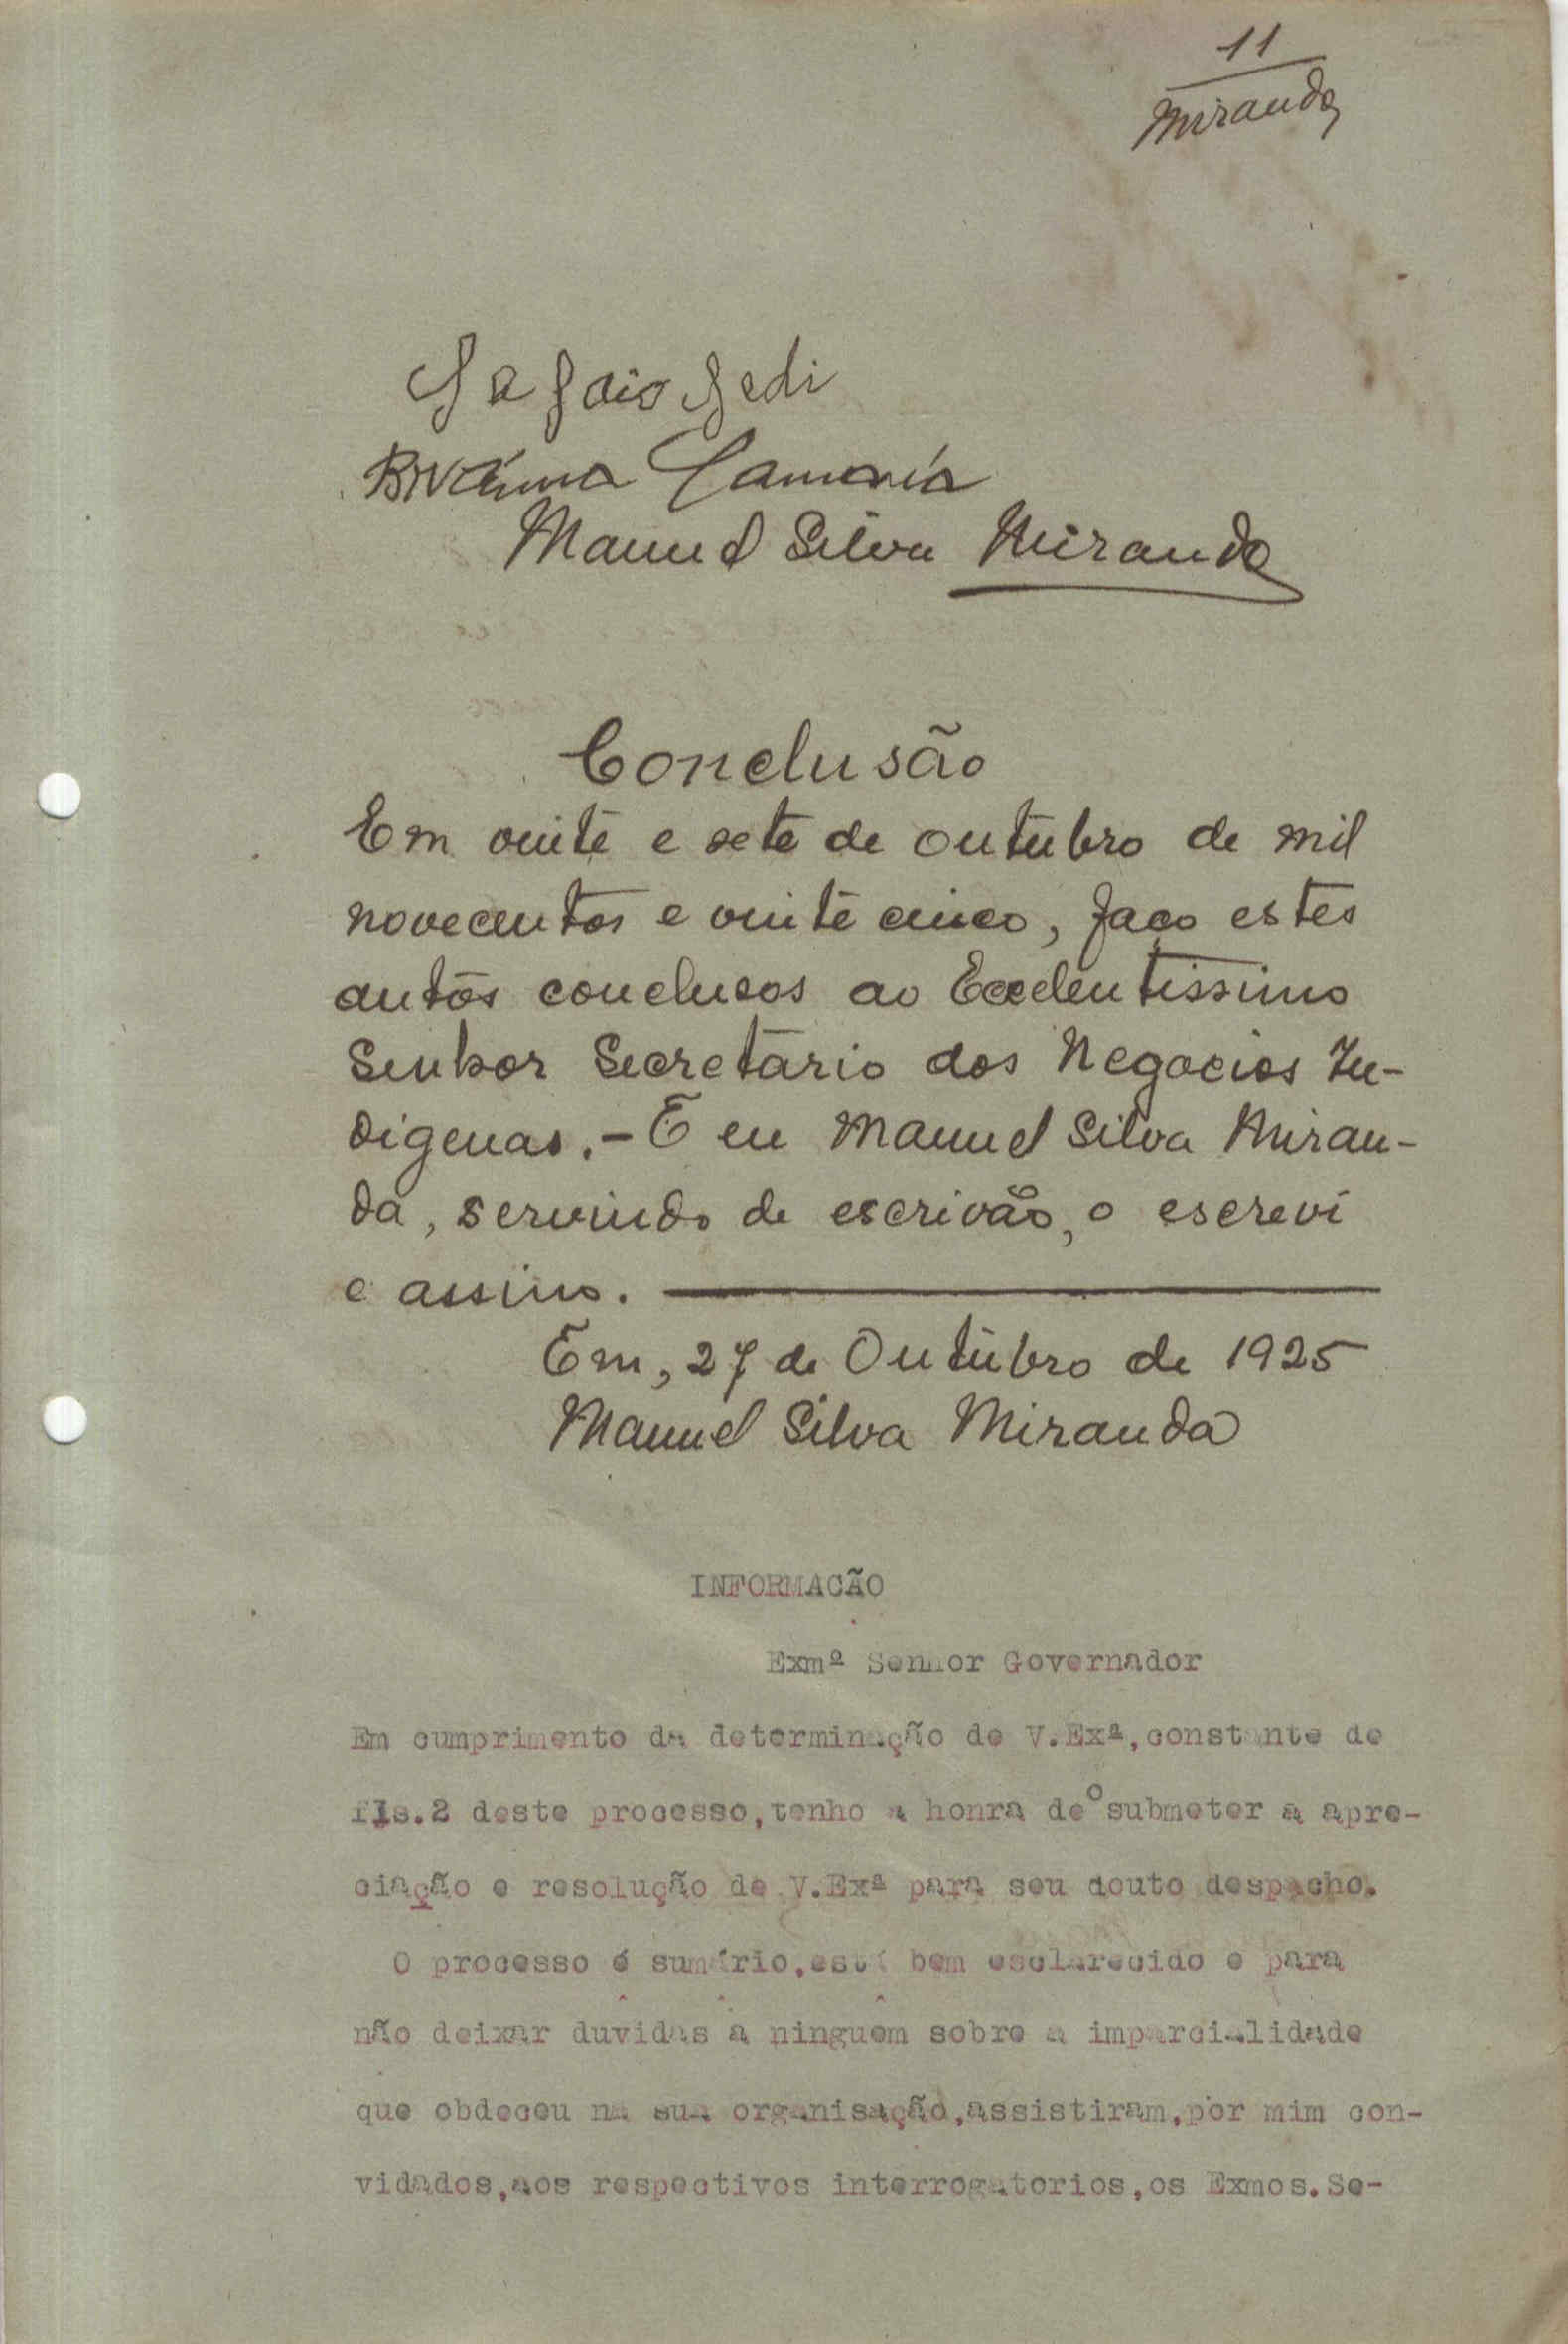 11
Miranda
Manuel Silva Miranda
Conclusão
Em vinte e sete de outubro de mil
novecentos e vinte cinco, faço estes
autos conclusos ao Excelentissimo
Senhor Secretario dos Negocios In-
digenas. - E eu Manuel Silva Miran-
da, servindo de escrivão, o escrevi
e assino.
Em, 27 de Outubro de 1925
Manuel Silva Miranda
INFORMACÃO
Exmº Senhor Governador
Em cumprimento da determinação de V.Exª,constante de
fls.2 deste processo,tenho a honra de o submeter a apre-
ciação e resolução de V.Exª para seu douto despacho.
O processo é sumário,está bem esclarecido e para
não deixar duvidas a ninguem sobre a imparcialidade
que obdeceu na sua organisação,assistiram,por mim con-
vidados,aos respectivos interrogatorios,os Exmos.Se-